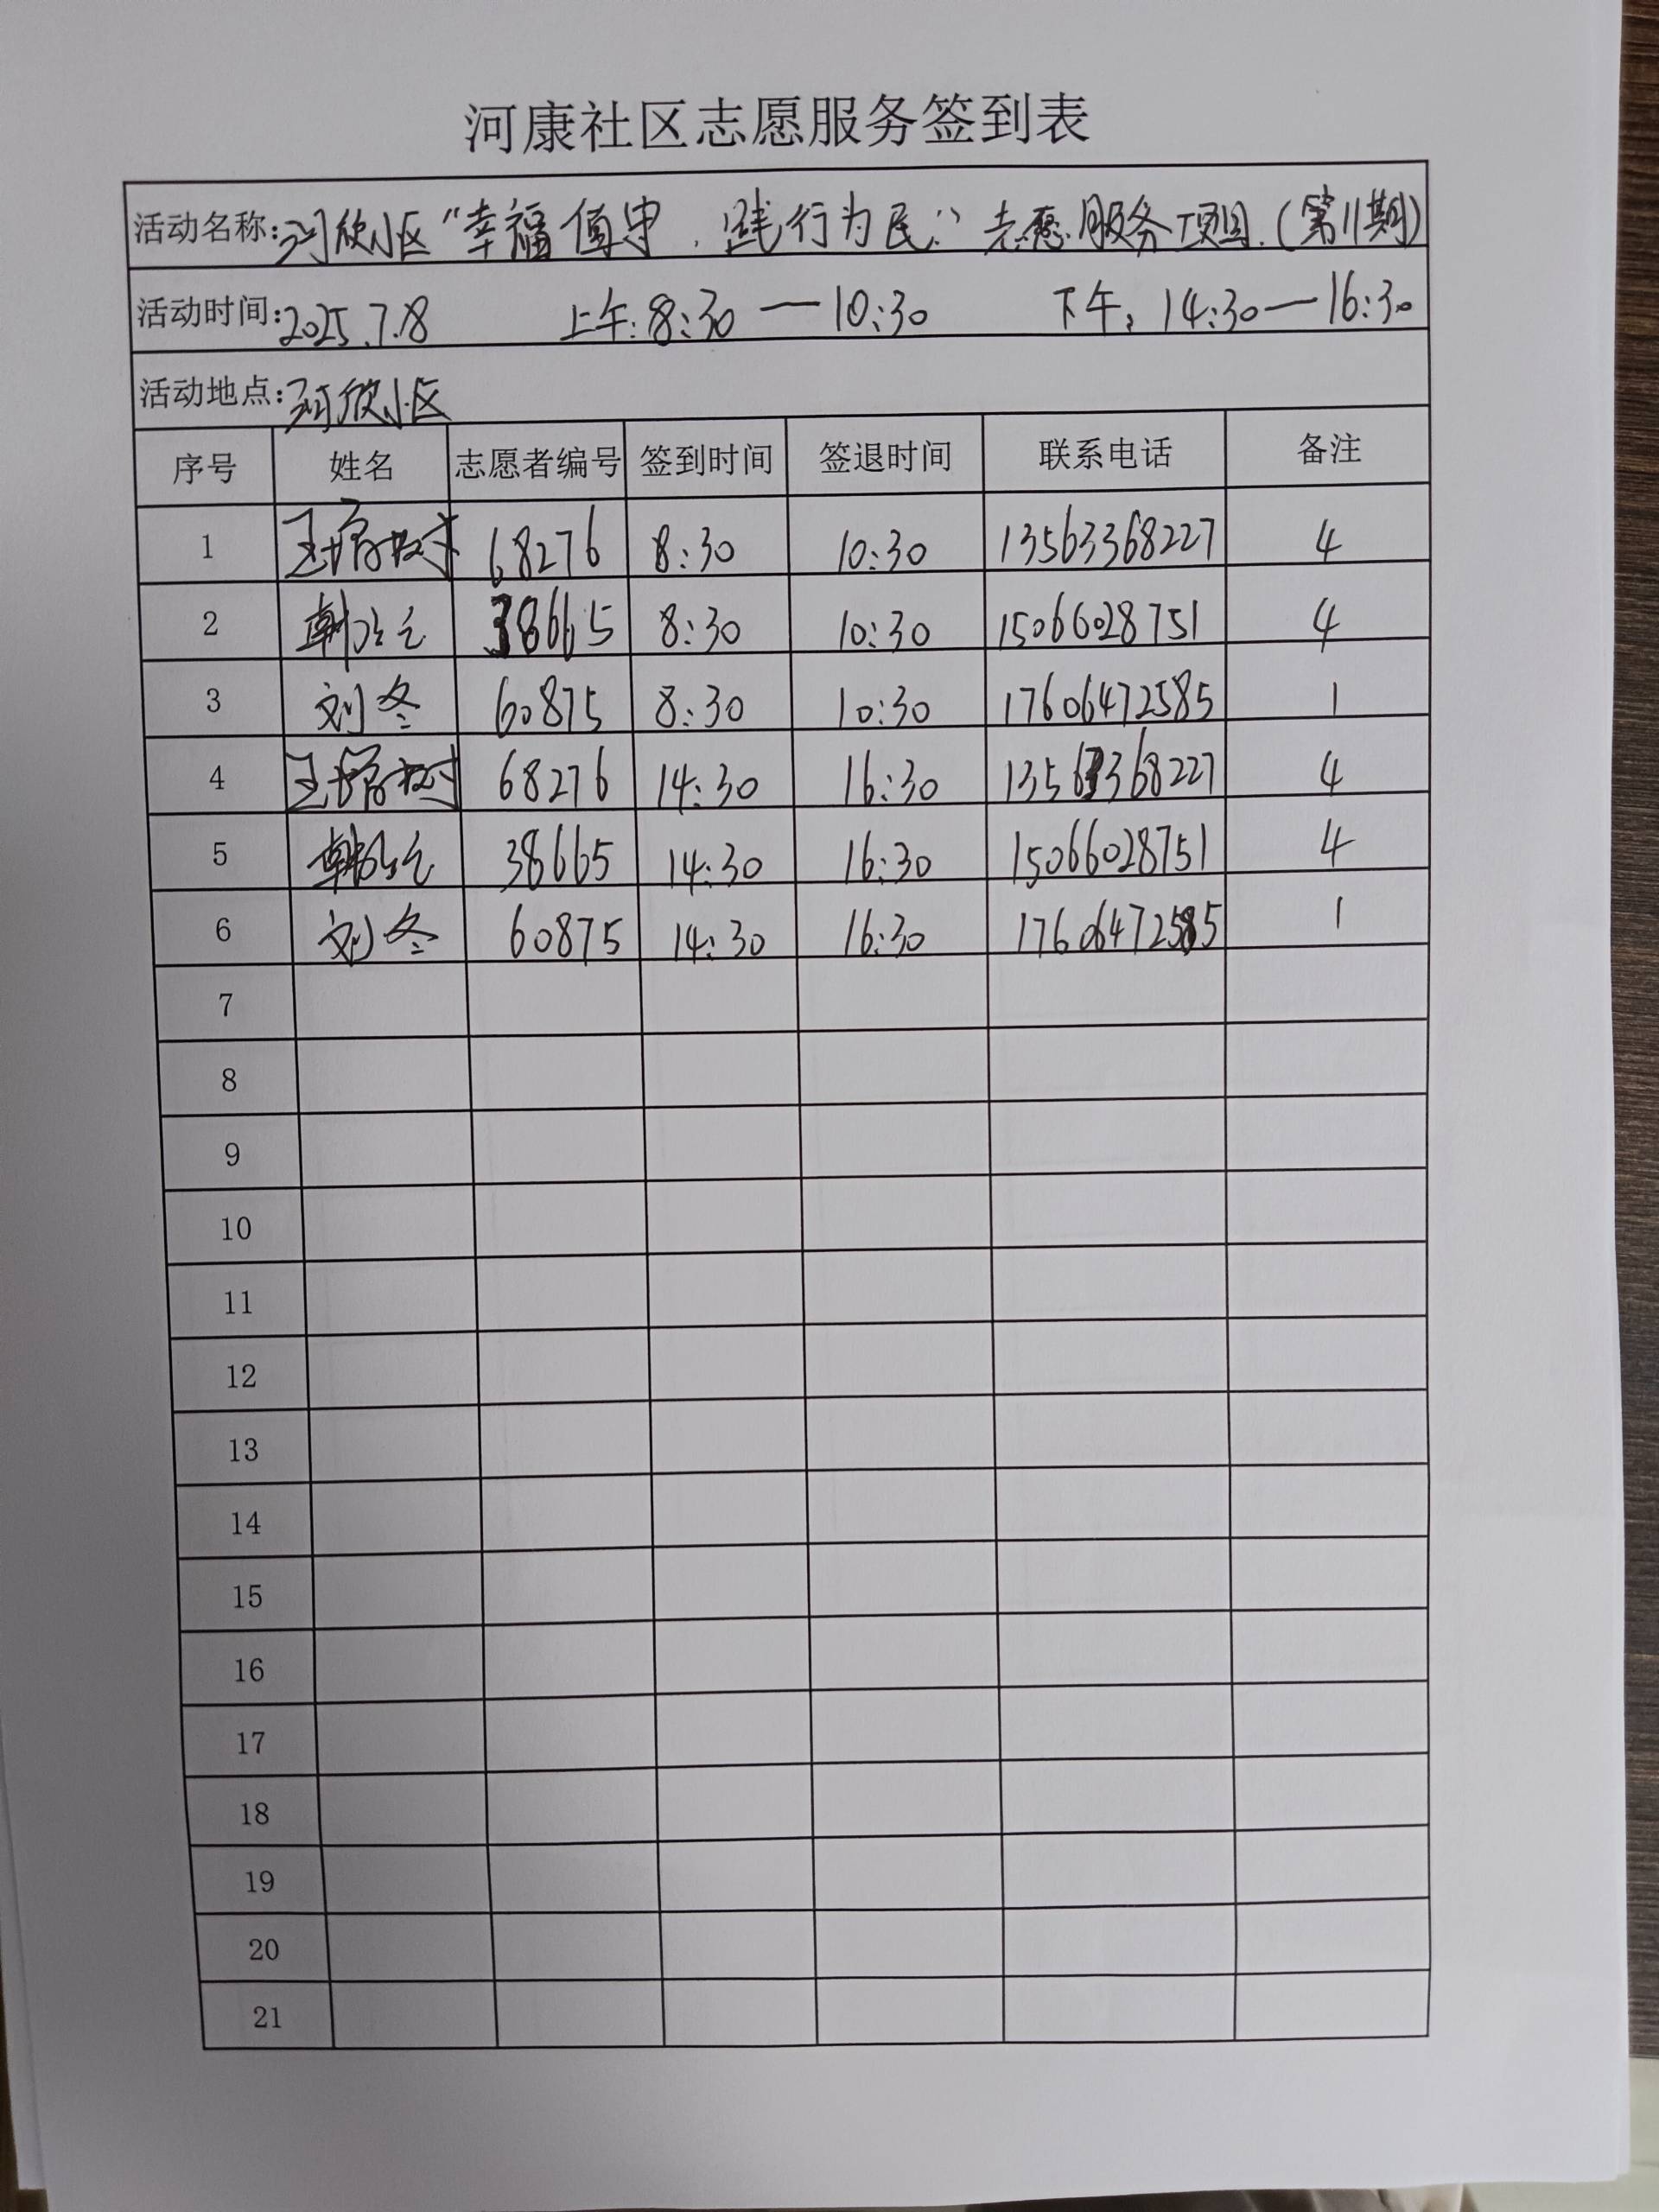 河康社区志愿服务签到表
活动名称:河欣小区“幸福值守,践行为民”志愿服务项目.(第11期)
活动时间:2025.7.8 上午:8:30—10:30 下午:14:30—16:30
活动地点:河欣小区
序号 姓名 志愿者编号 签到时间 签退时间 联系电话 备注
1 王 68276 8:30 10:30 13563368227 4
2 韩 38665 8:30 10:30 15066028751 4
3 刘冬 60875 8:30 10:30 17606472585 1
4 王 68276 14:30 16:30 13563368227 4
5 韩 38665 14:30 16:30 15066028751 4
6 刘冬 60875 14:30 16:30 17606472585 1
7
8
9
10
11
12
13
14
15
16
17
18
19
20
21